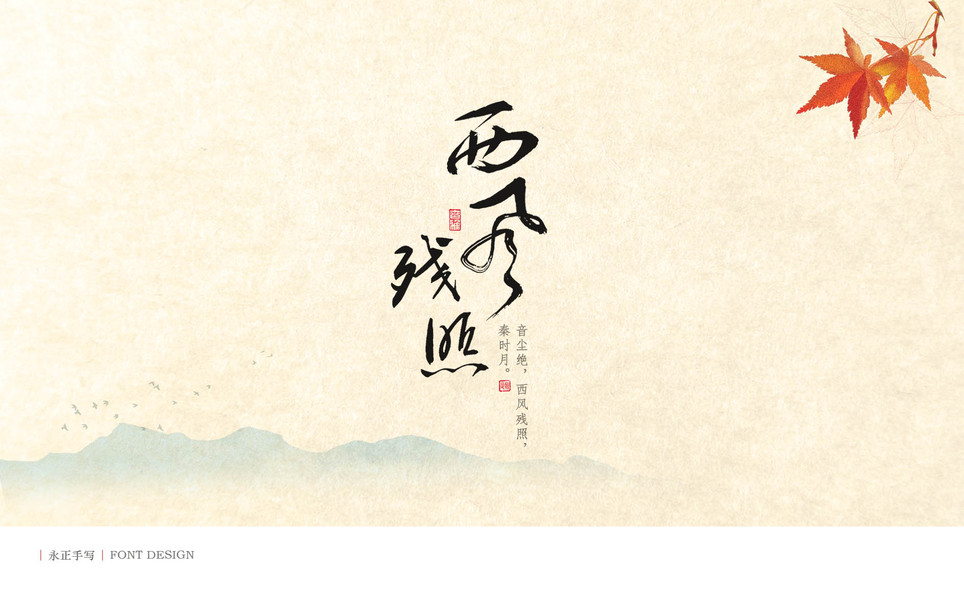 西风
残照
音尘绝，西风残照，
秦时月。
永正手写
FONT DESIGN